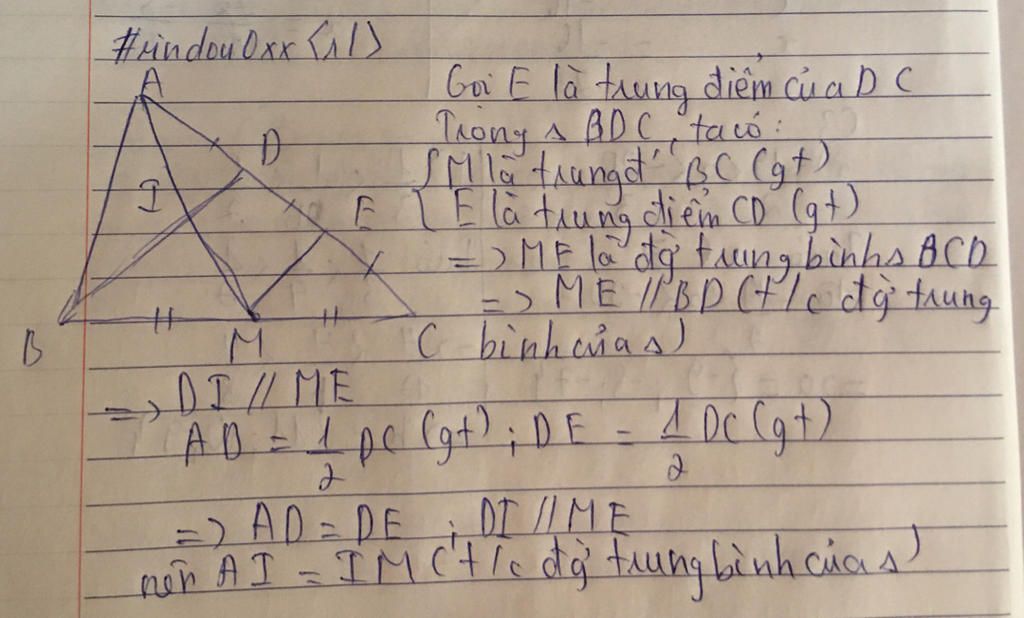 #rindou0xx<11>
A
Gọi E là trung điểm của DC
D
Trong Δ BDC, ta có:
I
{ M là trung đ' BC (gt)
E
{ E là trung điểm CD (gt)
=> ME là đg̀ trung bình Δ BCD
=> ME // BD (t/c đg̀ trung
B M C
bình của Δ)
=> DI // ME
AD = 1/2 DC (gt) ; DE = 1/2 DC (gt)
=> AD = DE ; DI // ME
nên AI = IM (t/c đg̀ trung bình của Δ)